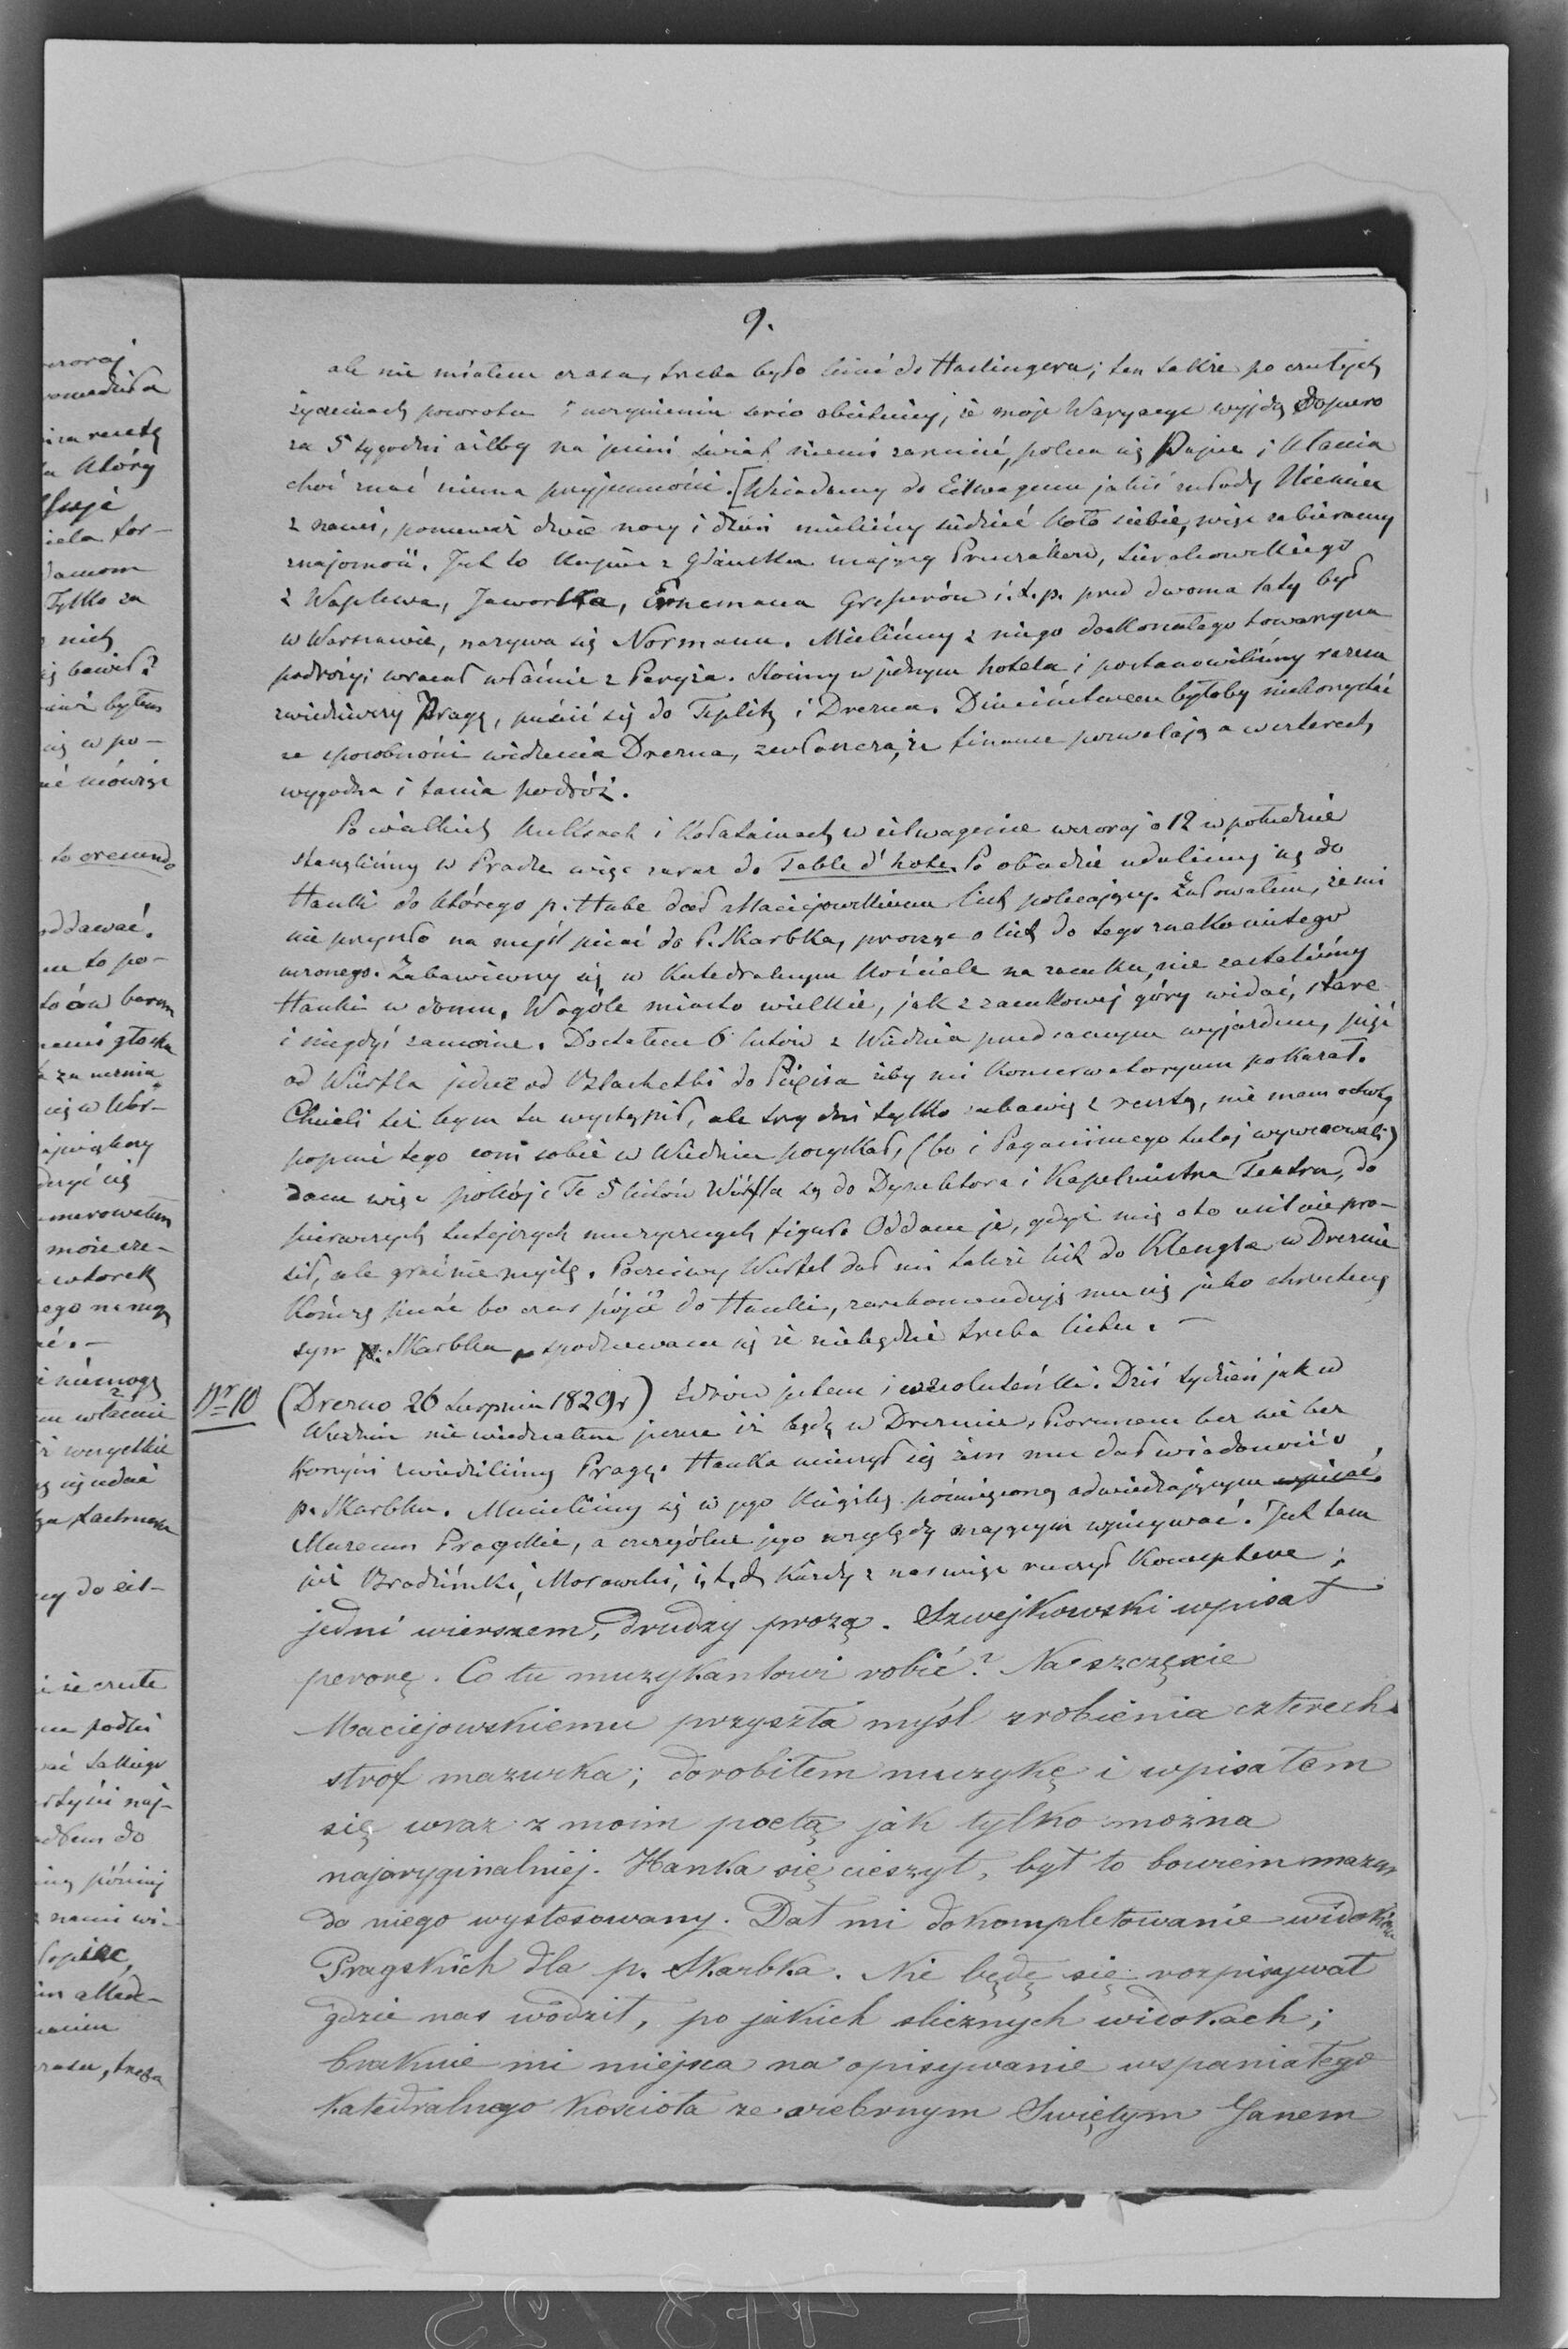 9.
ale nie miałem czasu, trzeba było lecieć do Haslingera; ten także po czułych
życzeniach powrotu i uczynieniu serio obietnicy, że moje Waryacye wyjdą dopiero
za 5 tygodni ażeby na jesień świat niemi zarzucić, poleca się Papie i kłania
choć znać niema przyjemności. [Wsiadamy do Eilwagenu jakiś młody Niemiec
z nami, ponieważ dwie nocy i dzień mieliśmy siedzieć koło siebie, więc zabieramy
znajomość. Jest to kupiec z Gdańska znający Pruszaków, Sierakowskiego
z Waplewa, Jaworka, Ernemana Gresserów i. t. p. przed dwoma laty był
w Warszawie, nazywa się Normann. Mieliśmy z niego doskonałego towarzysza
podróży; wracał właśnie z Paryża. Stoimy w jednym hotelu i postanowiliśmy razem
zwiedziwszy Pragę, puścić się do Teplitz i Drezna. Dzieciństwem byłoby niekorzystać
ze sposobności widzenia Drezna, zwłaszcza, że finanse pozwalają a w czterech,
wygodna i tania podróż.
Po wielkich kuksach i kołataniach w eilwagenie wczoraj o 12 w południe
stanęliśmy w Pradze więc zaraz do Table d'hote. Po obiedzie udaliśmy się do
Hanki do którego p. Hube dał Maciejowskiemu list polecający. Żałowałem, że mi
nie przyszło na myśl pisać do P. Skarbka, prosząc o list do tego znakomitego
uczonego. Zabawiwszy się w Katedralnym kościele na zamku, nie zastaliśmy
Hanki w domu. Wogóle miasto wielkie, jak z zamkowej góry widać, stare
i niegdyś zamożne. Dostałem 6 listów z Wiednia przed samym wyjazdem, pięć
od Würfla jeden od Blachetki do Pixisa żeby mi Konserwatoryum pokazał.
Chcieli też bym tu wystąpił, ale trzy dni tylko zabawię z resztą, nie mam ochoty
popsuć tego com sobie w Wiedniu pozyskał, (bo i Paganiniego tutaj wywracowali)
dam więc pokój: Te 5 listów Würfla są do Dyrektora i Kapelmistrza Teatru, do
pierwszych tutejszych muzycznych figur. Oddam je, gdyż mię o to usilnie pro-
sił, ale grać nie myślę. Poczciwy Würfel dał mi także list do Klengla w Dreznie
Kończę pisać bo czas pójść do Hanki, zarekomenduję mu się jako chrzestny
syn p. Skarbka, spodziewam się że niebędzie trzeba listu. —
Nr 10 (Drezno 26 Sierpnia 1829r) Zdrów jestem i wesoluteńki. Dziś tydzień jak w
Wiedniu nie wiedziałem jeszcze iż będę w Dreznie. Piorunem bez nie bez
korzyści zwiedziliśmy Pragę. Hanka ucieszył się żem mu dał wiadomość o
p. Skarbku. Musieliśmy się w jego księgę poświęconą odwiedzającym wpisać
Muzeum Pragskie, a szczególne jego względy mającym wpisywać. Jest tam
już Brodziński, Morawski, i. t. d. Każdy z nas więc ruszył konceptem;
jedni wierszem, drudzy prozą. Szwejkowski wpisał
perorę. Co tu muzykantowi robić? Na szczęście
Maciejowskiemu przyszła myśl zrobienia czterech
strof mazurka; dorobiłem muzykę i wpisałem
się wraz z moim poetą jak tylko można
najoryginalniej. Hanka się cieszył, był to bowiem mazur
do niego wystosowany. Dał mi dokompletowanie widoków
Pragskich dla p. Skarbka. Nie będę się rozpisywał
gdzie nas wodził, po jakich slicznych widokach;
braknie mi miejsca na opisywanie wspaniałego
Katedralnego Kościoła ze srebrnym Świętym Janem